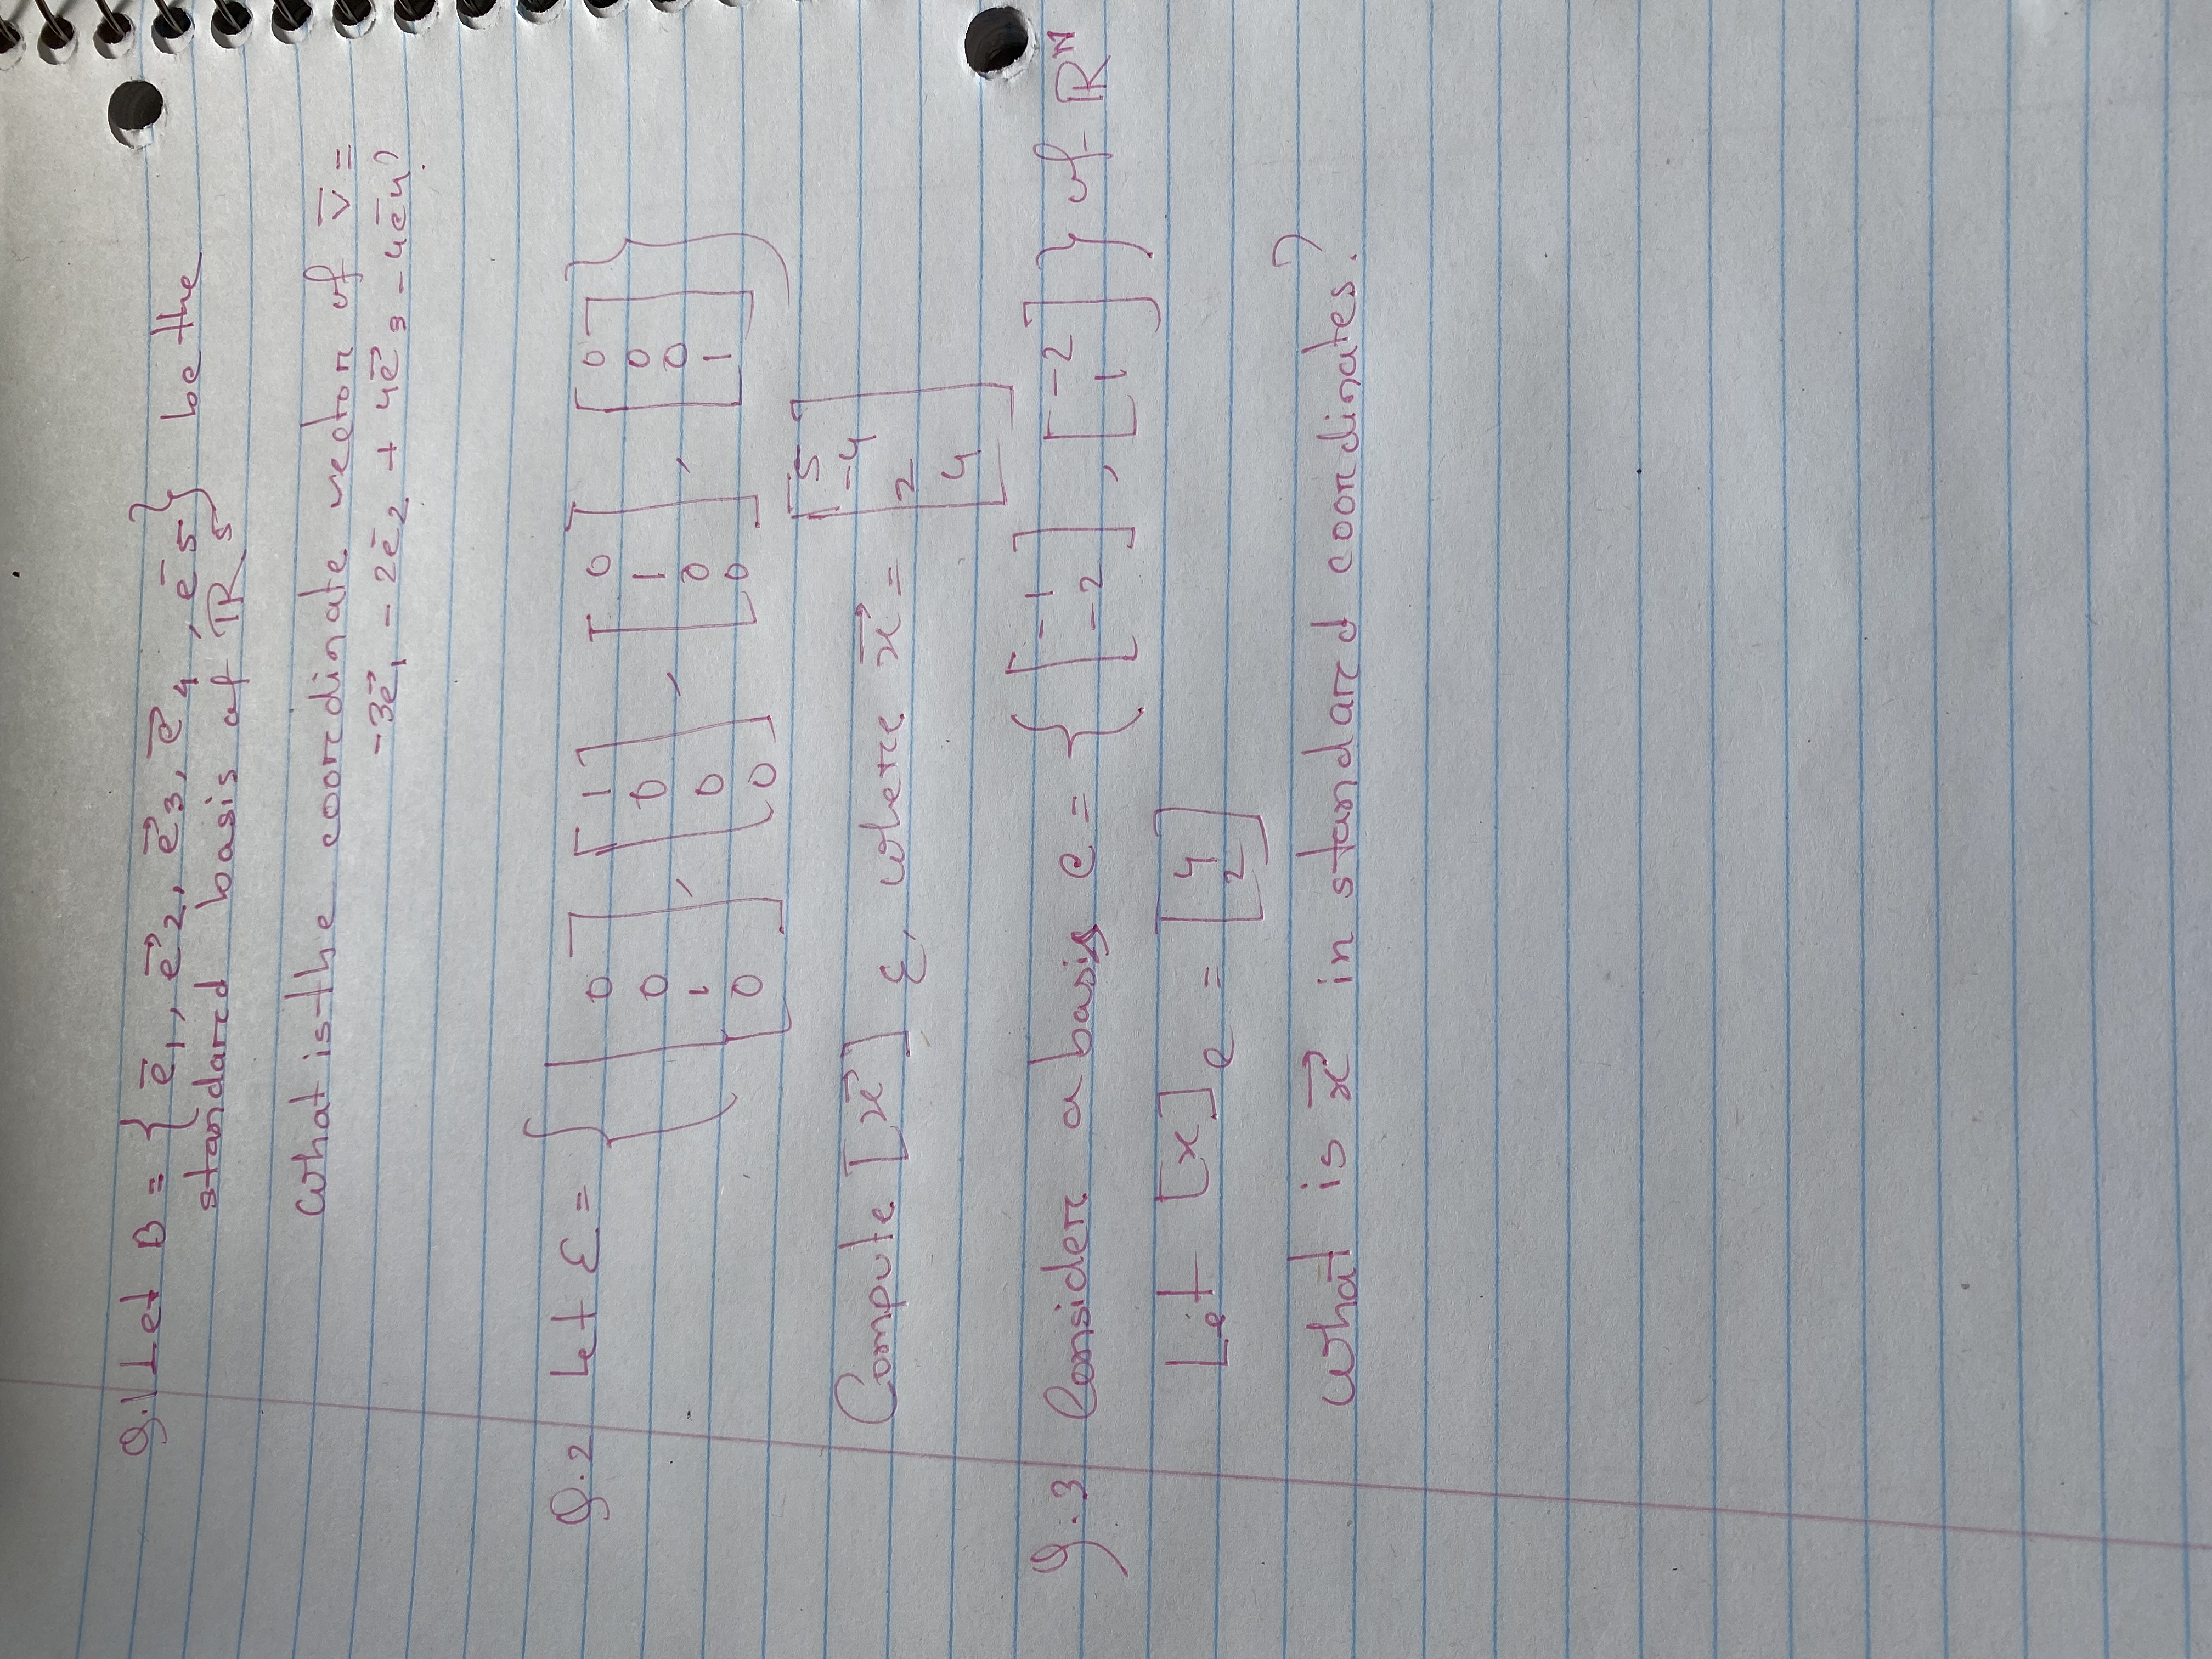 Q.1 Let B = { e⃗₁, e⃗₂, e⃗₃, e⃗₄, e⃗₅ } be the
standard basis of ℝ⁵
What is the coordinate vector of v⃗ =
-3e⃗₁ - 2e⃗₂ + 4e⃗₃ - 4e⃗₄?
Q.2 Let Ɛ = { [0 0 1 0], [1 0 0 0], [0 1 0 0], [0 0 0 1] }
Compute [x⃗] Ɛ, where x⃗ = [5 -4 2 4]
Q.3 Consider a basis C = { [-1 -2], [-2 1] } of ℝᴺ
Let [x]c = [4 2]
What is x⃗ in standard coordinates?